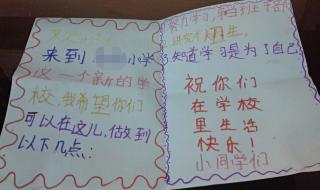 来到 小学
这一个新的学
校,我希望你们
可以在这儿,做到
以下几点:
努力学习,
生。
知道学习是为了自己
祝你们
在学校
里生活
快乐!
小同学们